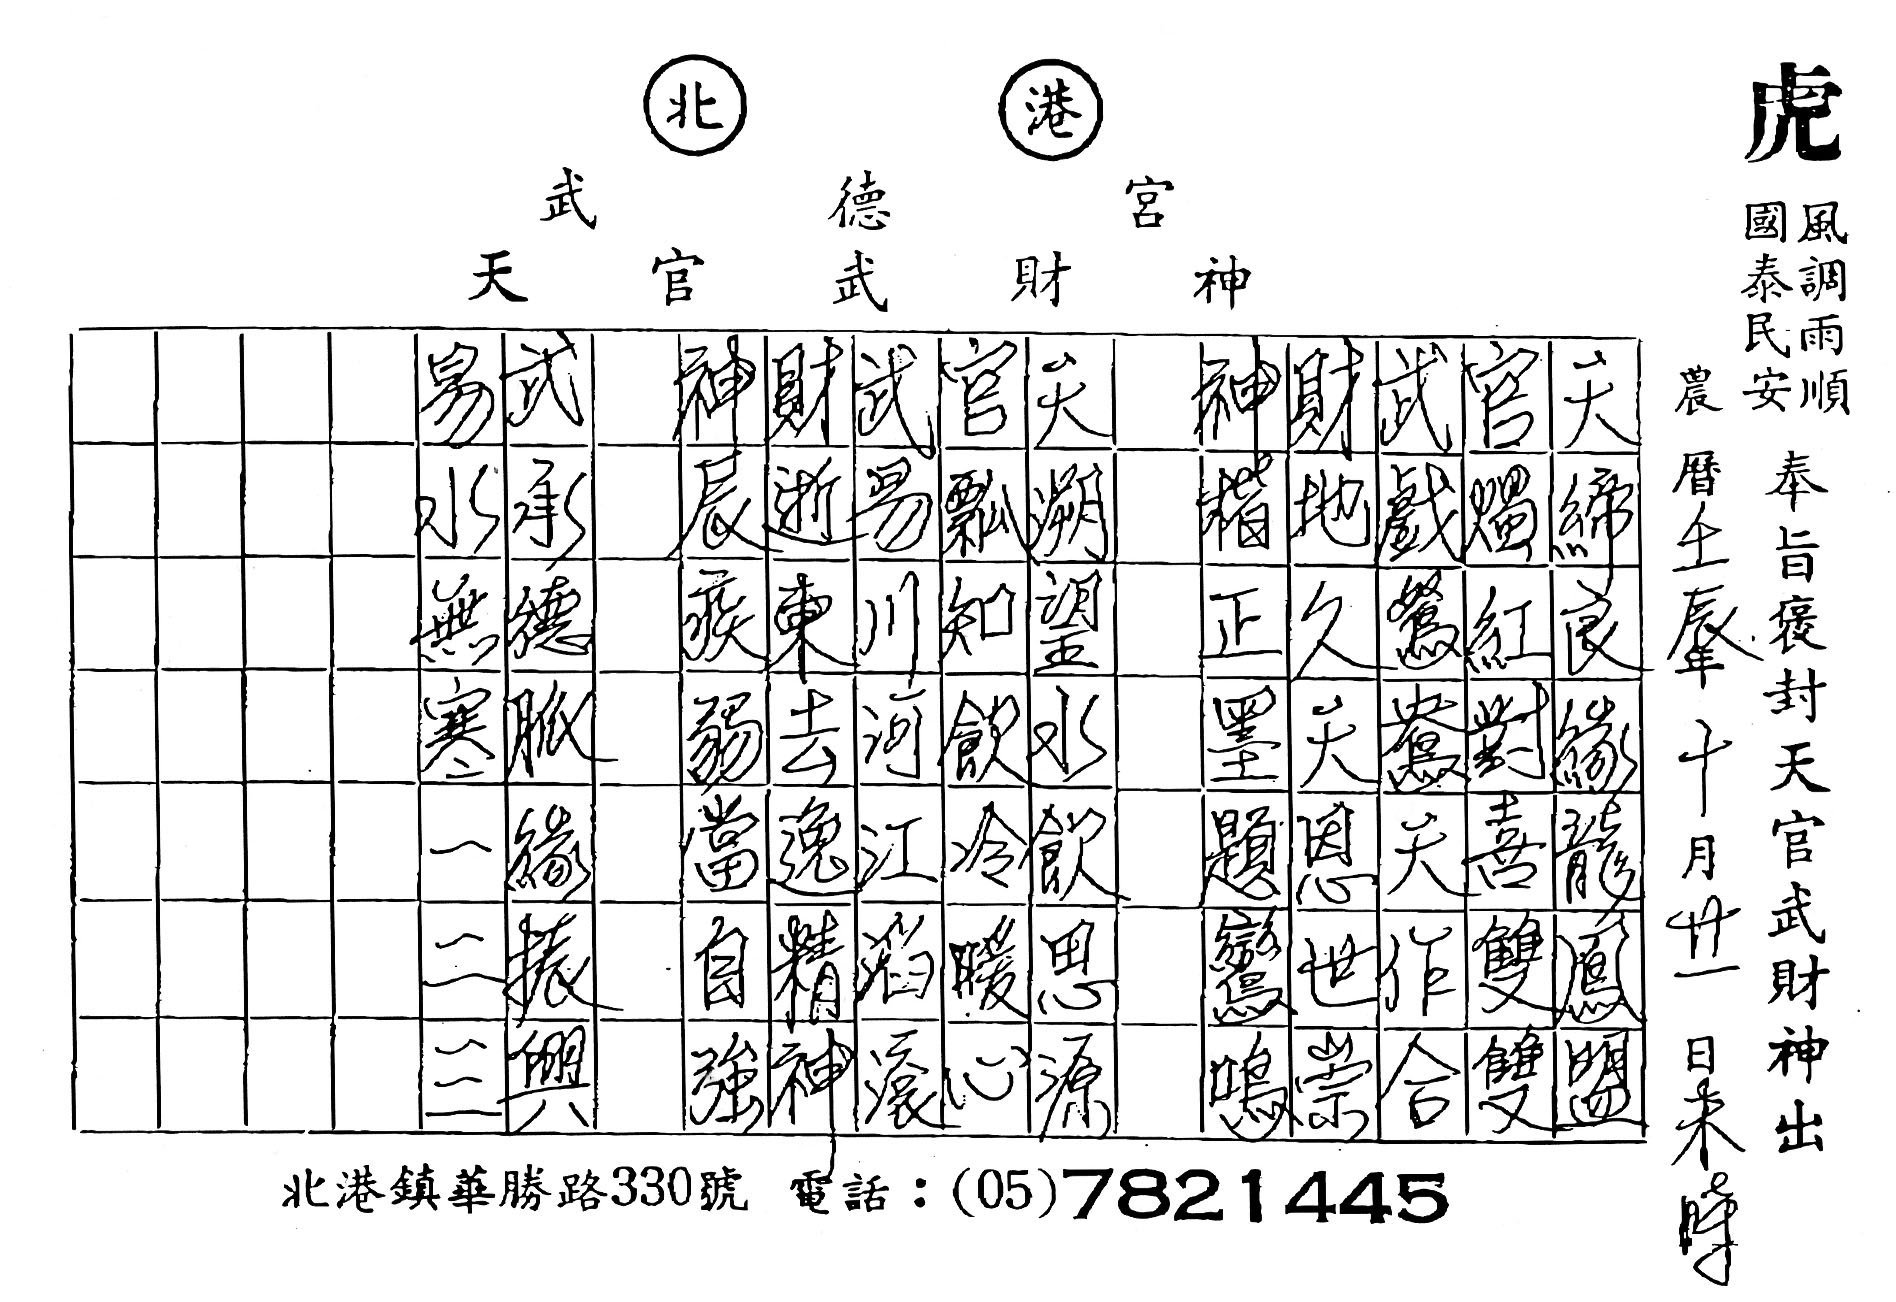 北 港
武 德 宮
天 官 武 財 神
虎
風調雨順
國泰民安
奉旨褒封天官武財神出
農曆壬辰年十月廿一日未時
天締良緣龍鳳盟
官燭紅對喜雙雙
武戲鴛鴦天作合
財地久天恩世崇
神楷正墨題鸞鳴
天溯望水飲思源
官瓢知飲冷暖心
武易川河江滔滾
財逝東去逸精神
神辰疾弱當自強
武承德脈緣振興
易水無寒一二三
北港鎮華勝路330號 電話：(05)7821445